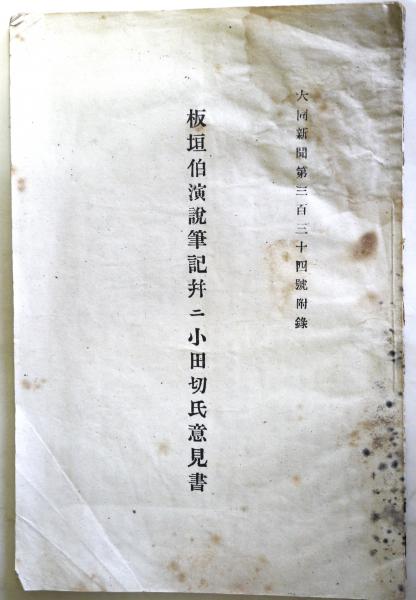 大同新聞第三百三十四號附錄
板垣伯演說筆記幷ニ小田切氏意見書